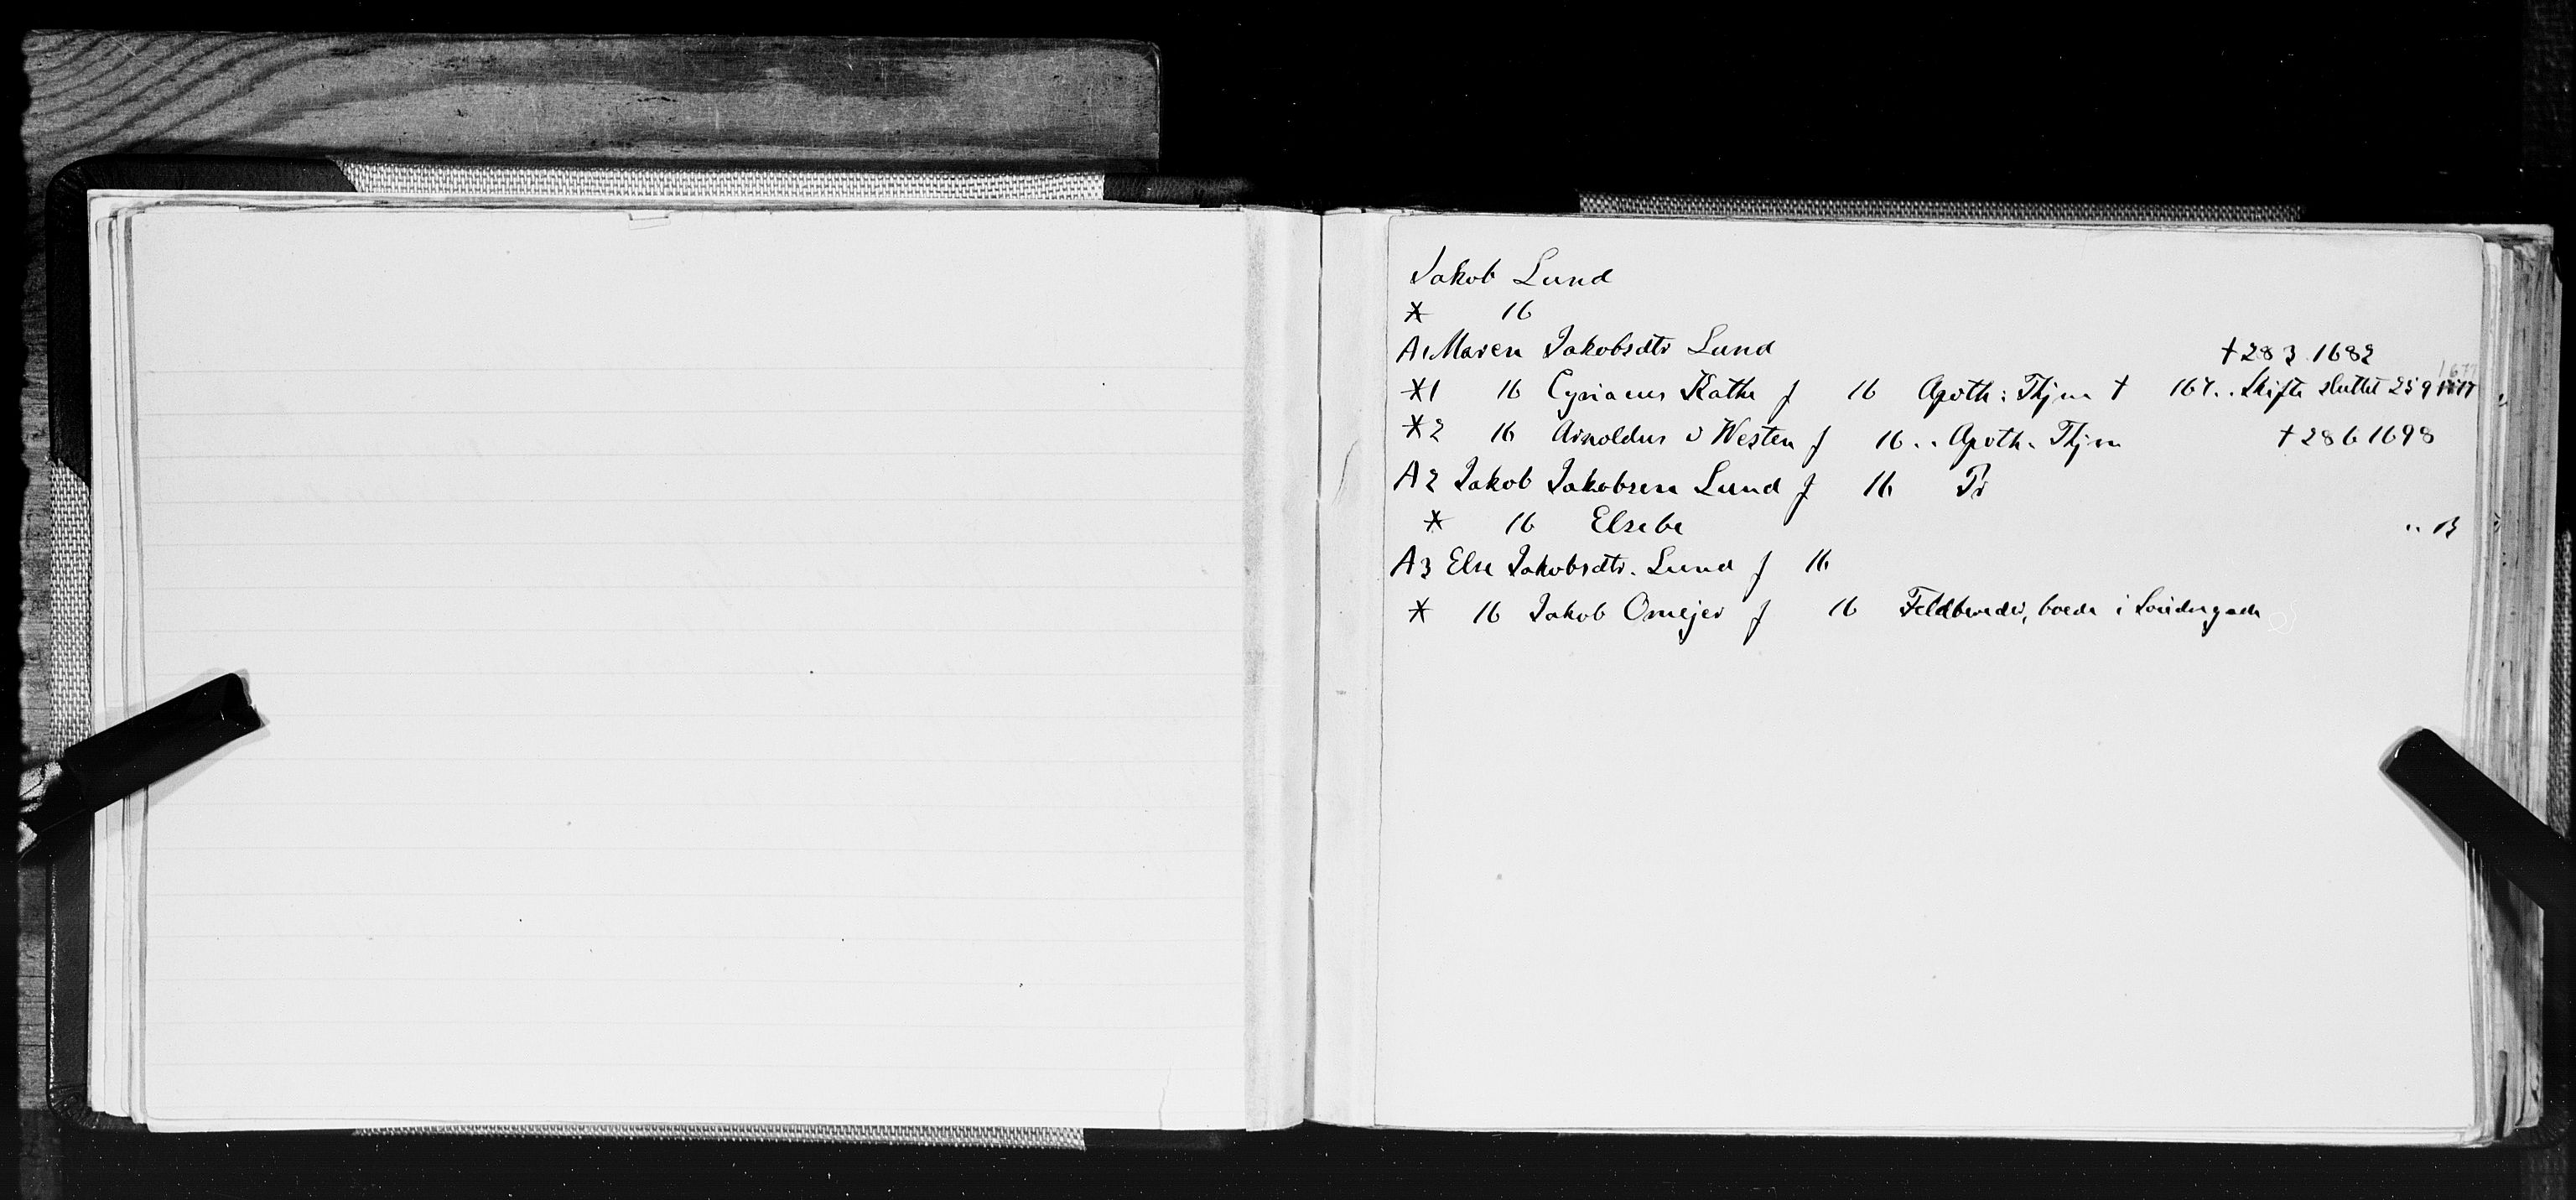 Jakob Lund
* 16
A1 Maren Jakobsdtr Lund † 28 3 1682
*1 16 Cyriacus Kathe f 16 Apoth: Thjm † 167.. Skifte sluttet 25 9 1677
*2 16 Arnoldus v Westen f 16.. Apoth. Thjm † 28 6 1698
A2 Jakob Jakobsen Lund f 16 Tr
* 16 Elsebe .. B
A3 Else Jakobsdtr. Lund f 16
* 16 Jakob Omejer f 16 Feldbereder, boede i Søndregade